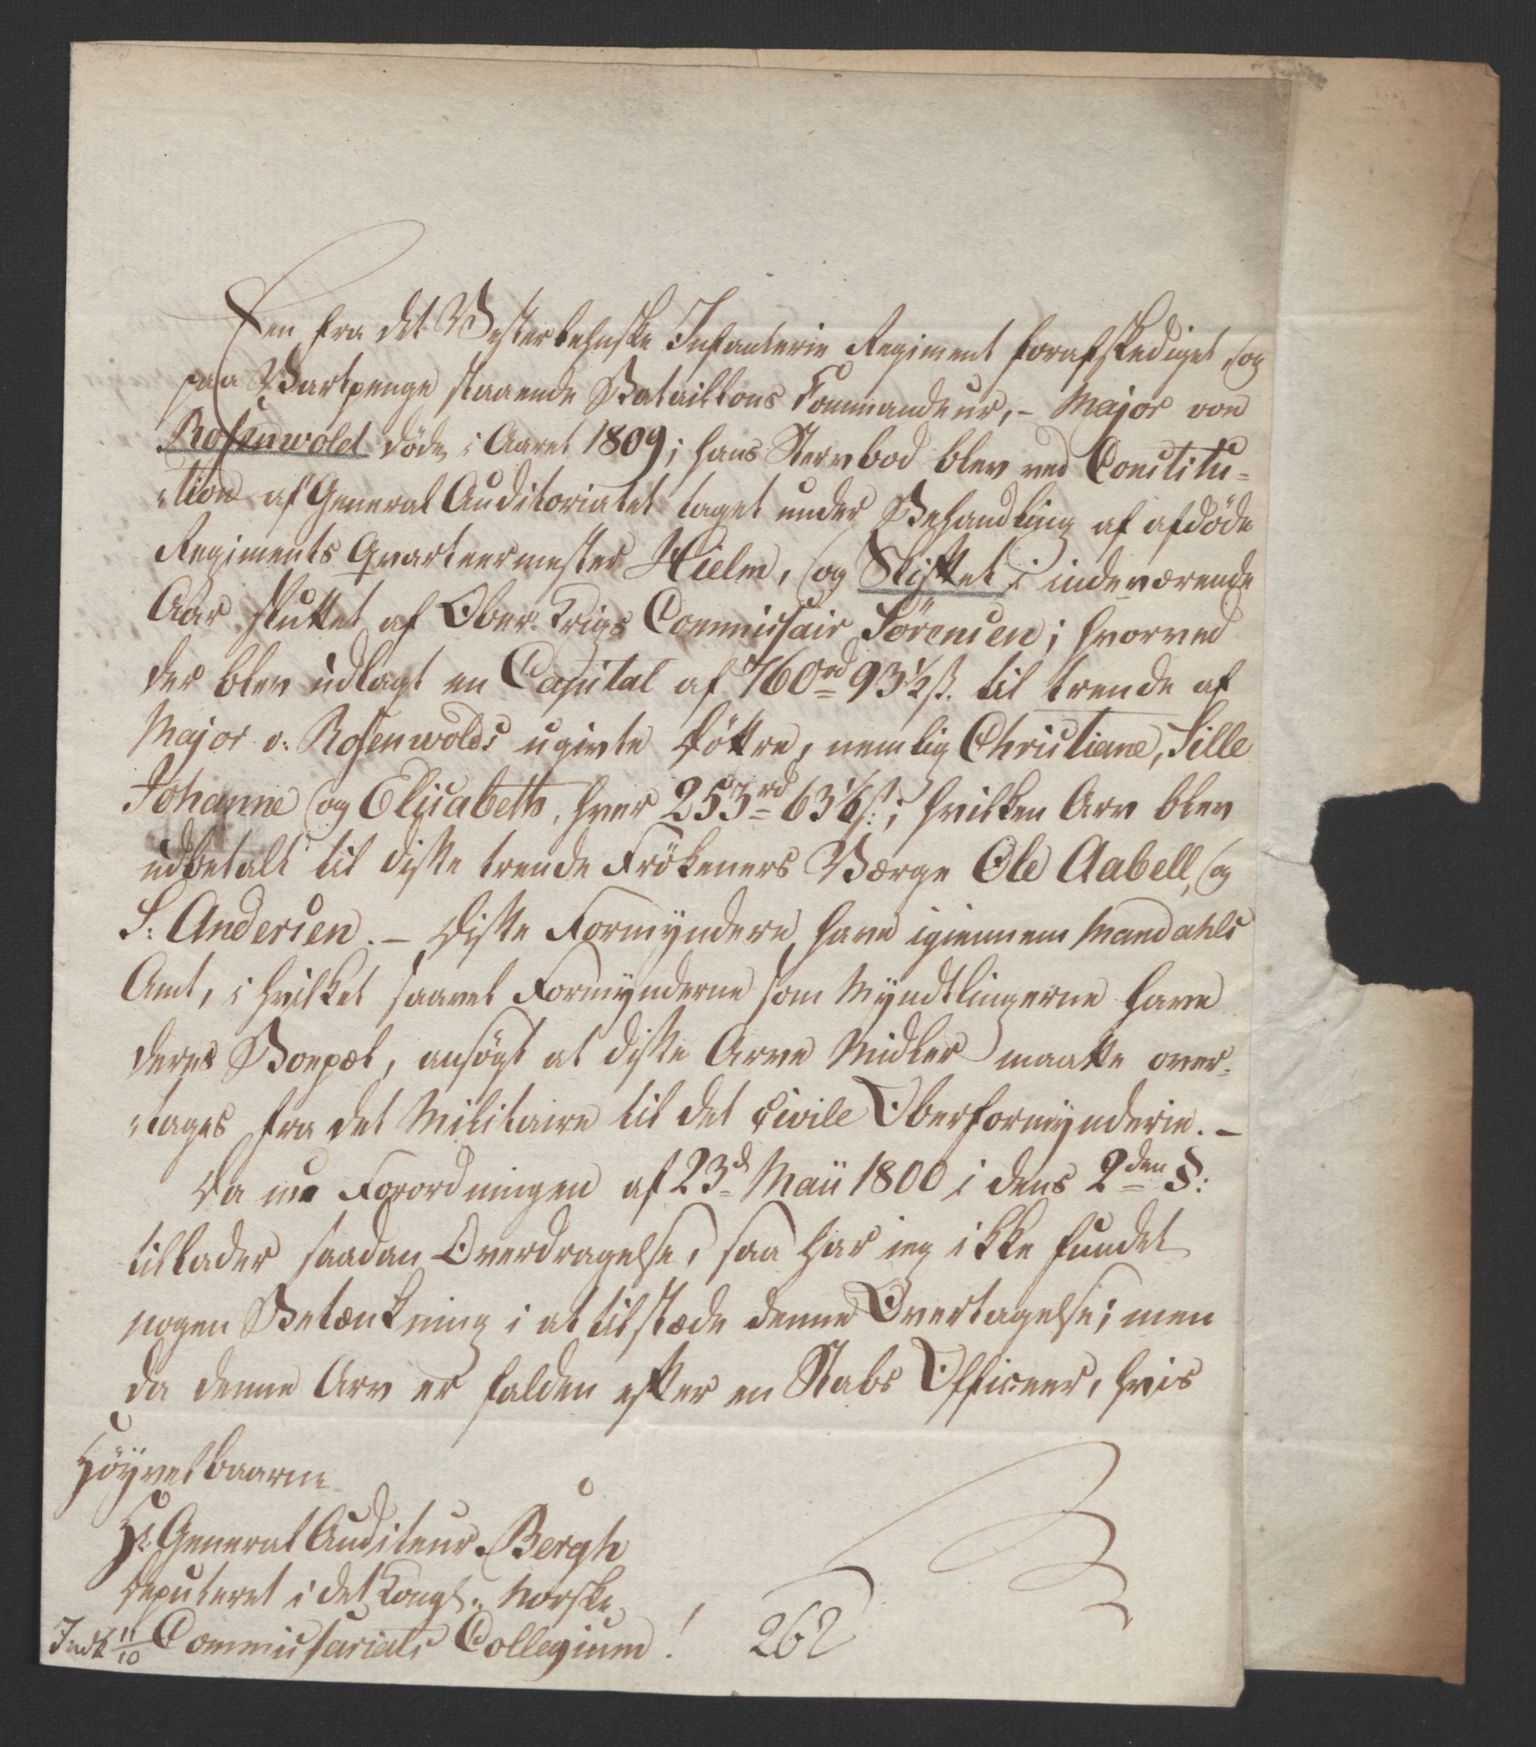 Den fra det Vesterlehnske Infanterie Regiment forafskediget, og
paa Vartpenge staaende Bataillons Commandeur, – Major von
Rosenwold døde i Aaret 1809; hans Stervbod blev ved Constitu-
-tion af General Auditoriatet taget under Behandling af afdøde
Regiments Qvarteermester Hielm, og Skiftet i indeværende
Aar sluttet af Ober-Krigs Commissair Sörensen; hvorved
der blev udlagt en Capital af 760rd 93½ s. til trende af
Major v: Rosenwolds ugivte Døttre, nemlig Christiane, Sille
Johanne og Elisabeth, hver 253rd 63⅙ s:; hvilken Arv blev
udbetalt til disse trende Frökeners Værge Ole Aabell, og
S: Andersen. – Disse Formyndere have igiennem Mandahls
Amt, i hvilket saavel Formynderne som Myndtlingerne have
deres Boepæl, ansøgt at disse Arve Midler maatte over-
-tages fra det Militaire til det civile Oberformynderie. –
Da nu Forordningen af 23d Maii 1800 i dens 2den §:
tillader saadan Overdragelse, saa har ieg ikke fundet
nogen Betænkning i at tilstæde denne Overtagelse; men
da denne Arv er falden efter en Stabs Officeer, hvis
Høyvelbaarne
Hr. General Auditeur Bergh
Deputeret i det Kongl: Norske
Commissariats Collegium!
Indk 11/10
262